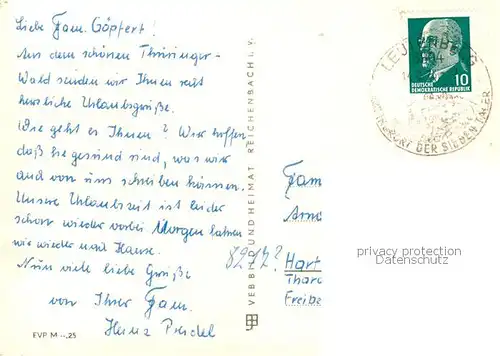 Liebe Fam. Göpfert!
Aus dem schönen Thüringer-
Wald senden wir Ihnen recht
herzliche Urlaubsgrüße.
Wie geht es Ihnen? Wir hoffen
daß Sie gesund sind, was wir
auch von uns schreiben können.
Unsere Urlaubszeit ist leider
schon wieder vorbei Morgen fahren
wir wieder nach Hause.
Nun viele liebe Grüße
von Ihrer Fam.
Heinz
EVP M –,25
VEB BILD UND HEIMAT REICHENBACH I. V.
LEUTENBERG
DEUTSCHE
DEMOKRATISCHE REPUBLIK
10
DER SIEBEN TÄLER
Fam
8212?
Hart
Thara
Freibe
privacy protection
Datenschutz